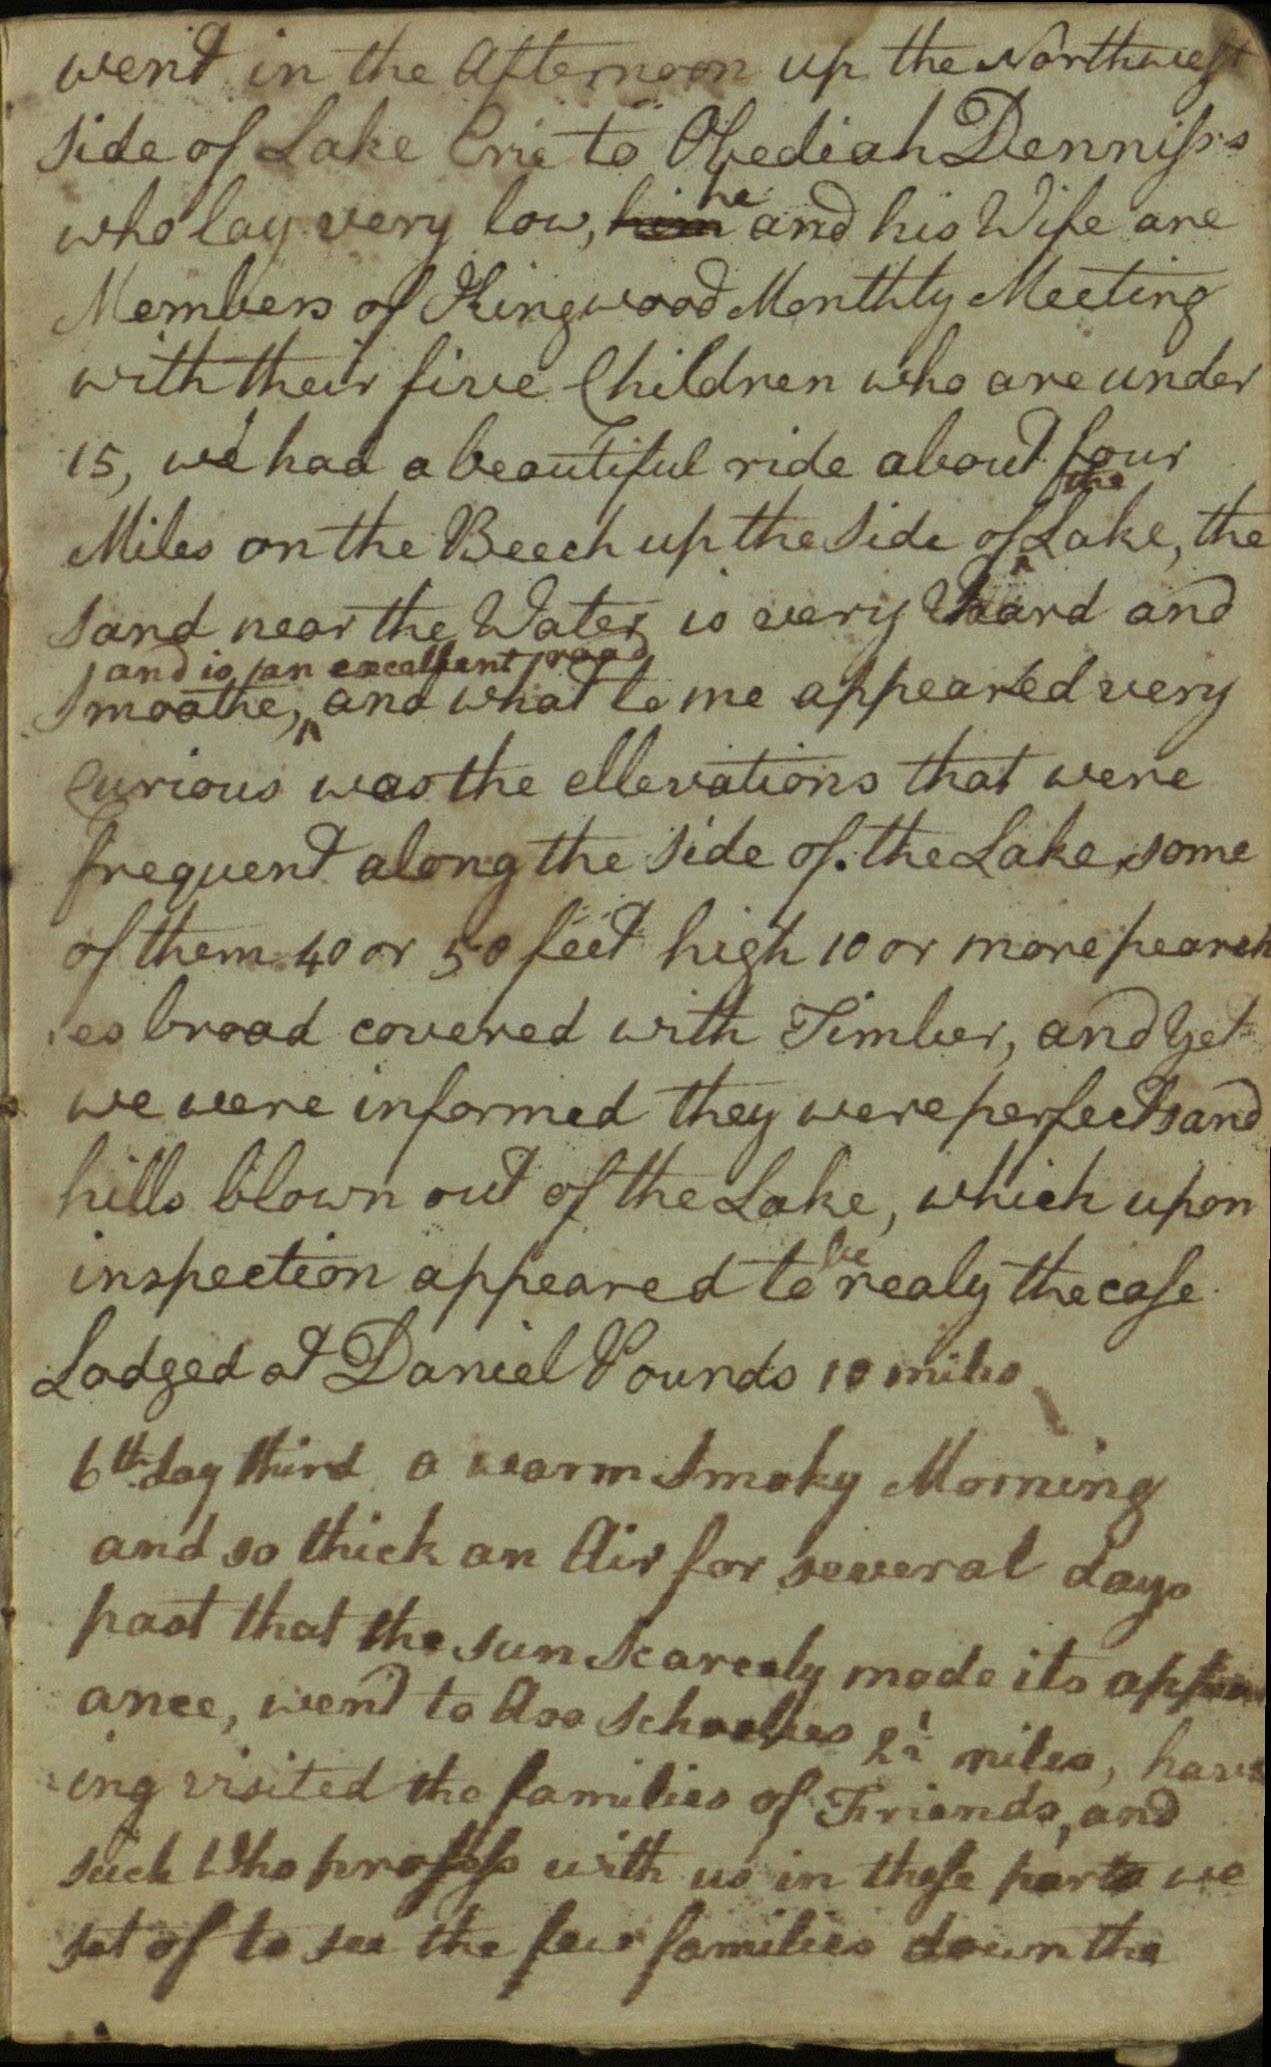 went in the Afternoon up the Northwest
side of Lake Erie to Obediah Dennis's
who lay very low, him he and his Wife are
Members of Kingwood Monthly Meeting
with their five Children who are under
15, we had a beautiful ride about four
Miles on the Beech up the side of the Lake, the
sand near the Water is very hard and
smoothe, and is an excellent road and what to me appeared very
Curious was the ellevations that were
frequent along the side of the Lake, some
of them 40 or 50 feet high 10 or more pearch
es broad covered with Timber, and yet
we were informed they were perfect sand
hills blown out of the Lake, which upon
inspection appeared to be realy the case
Lodged at Daniel Pounds 10 miles
6th day third a warm smoky Morning
and so thick an Air for several days
past that the sun scarcely made its appear
ance, went to Asa Schooleys 2½ miles, hav
ing visited the families of Friends, and
such who profess with us in these parts we
set of to see the few families down the